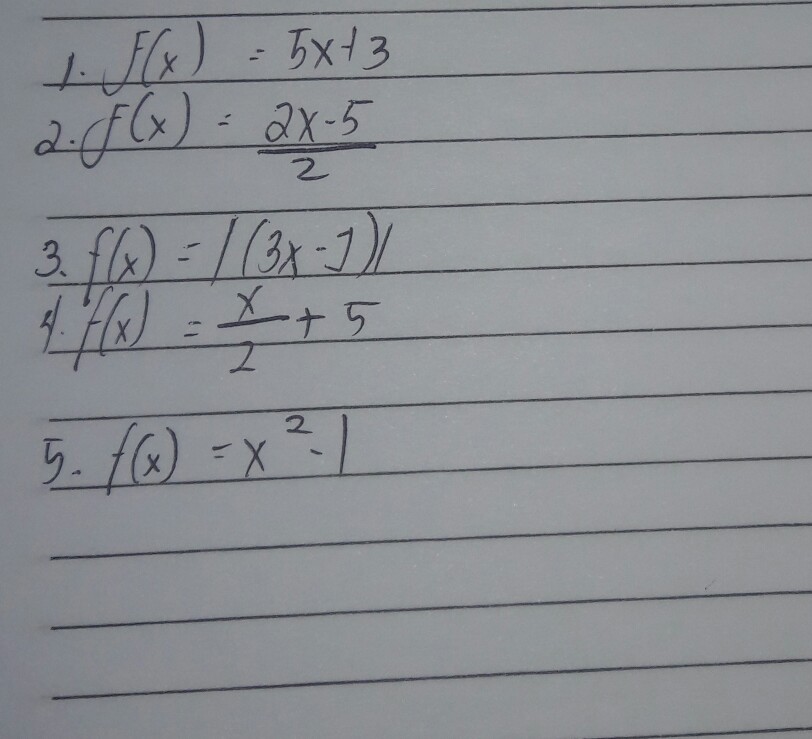 1. f(x) = 5x+3
2. f(x) = 2x-5
2
3. f(x) = |(3x-7)|
4. f(x) = x/2 + 5
5. f(x) = x²-1